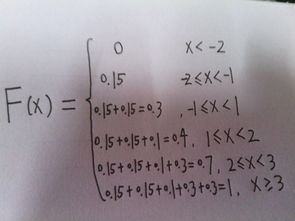 0 x < -2
0.15 -2 ≤ x < -1
0.15+0.15=0.3, -1 ≤ x < 1
F(x) = 0.15+0.15+0.1=0.4, 1 ≤ x < 2
0.15+0.15+0.1+0.3=0.7, 2 ≤ x < 3
0.15+0.15+0.1+0.3+0.3=1, x ≥ 3